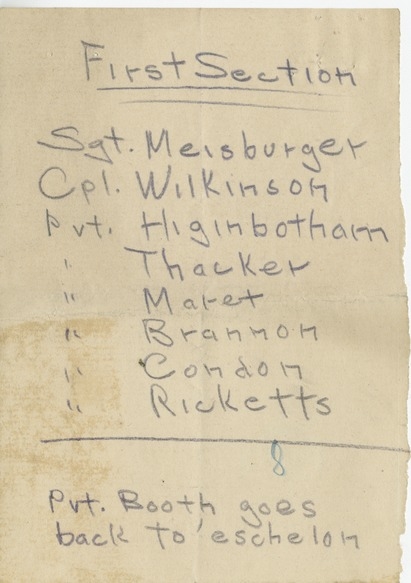 First Section
Sgt. Meisburger
Cpl. Wilkinson
Pvt. Higinbotham
" Thacker
" Maret
" Brannon
" Condon
" Ricketts
8
Pvt. Booth goes
back to eschelon